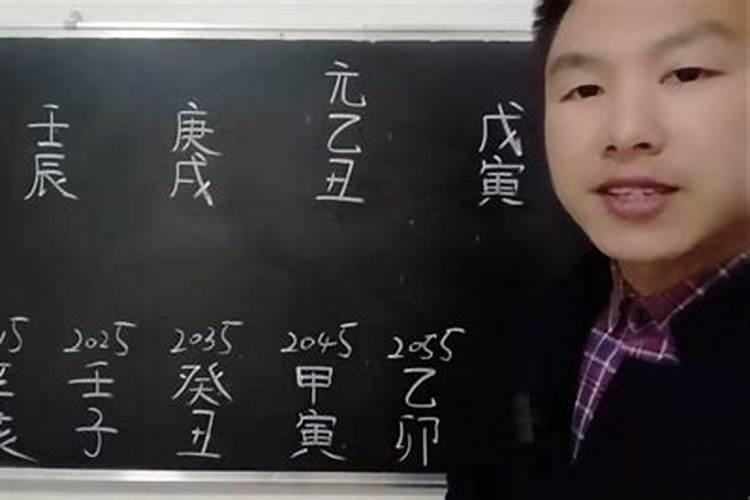 壬辰 庚戌 元乙丑 戊寅
15 2025 2035 2045 2055
壬子 癸丑 甲寅 乙卯